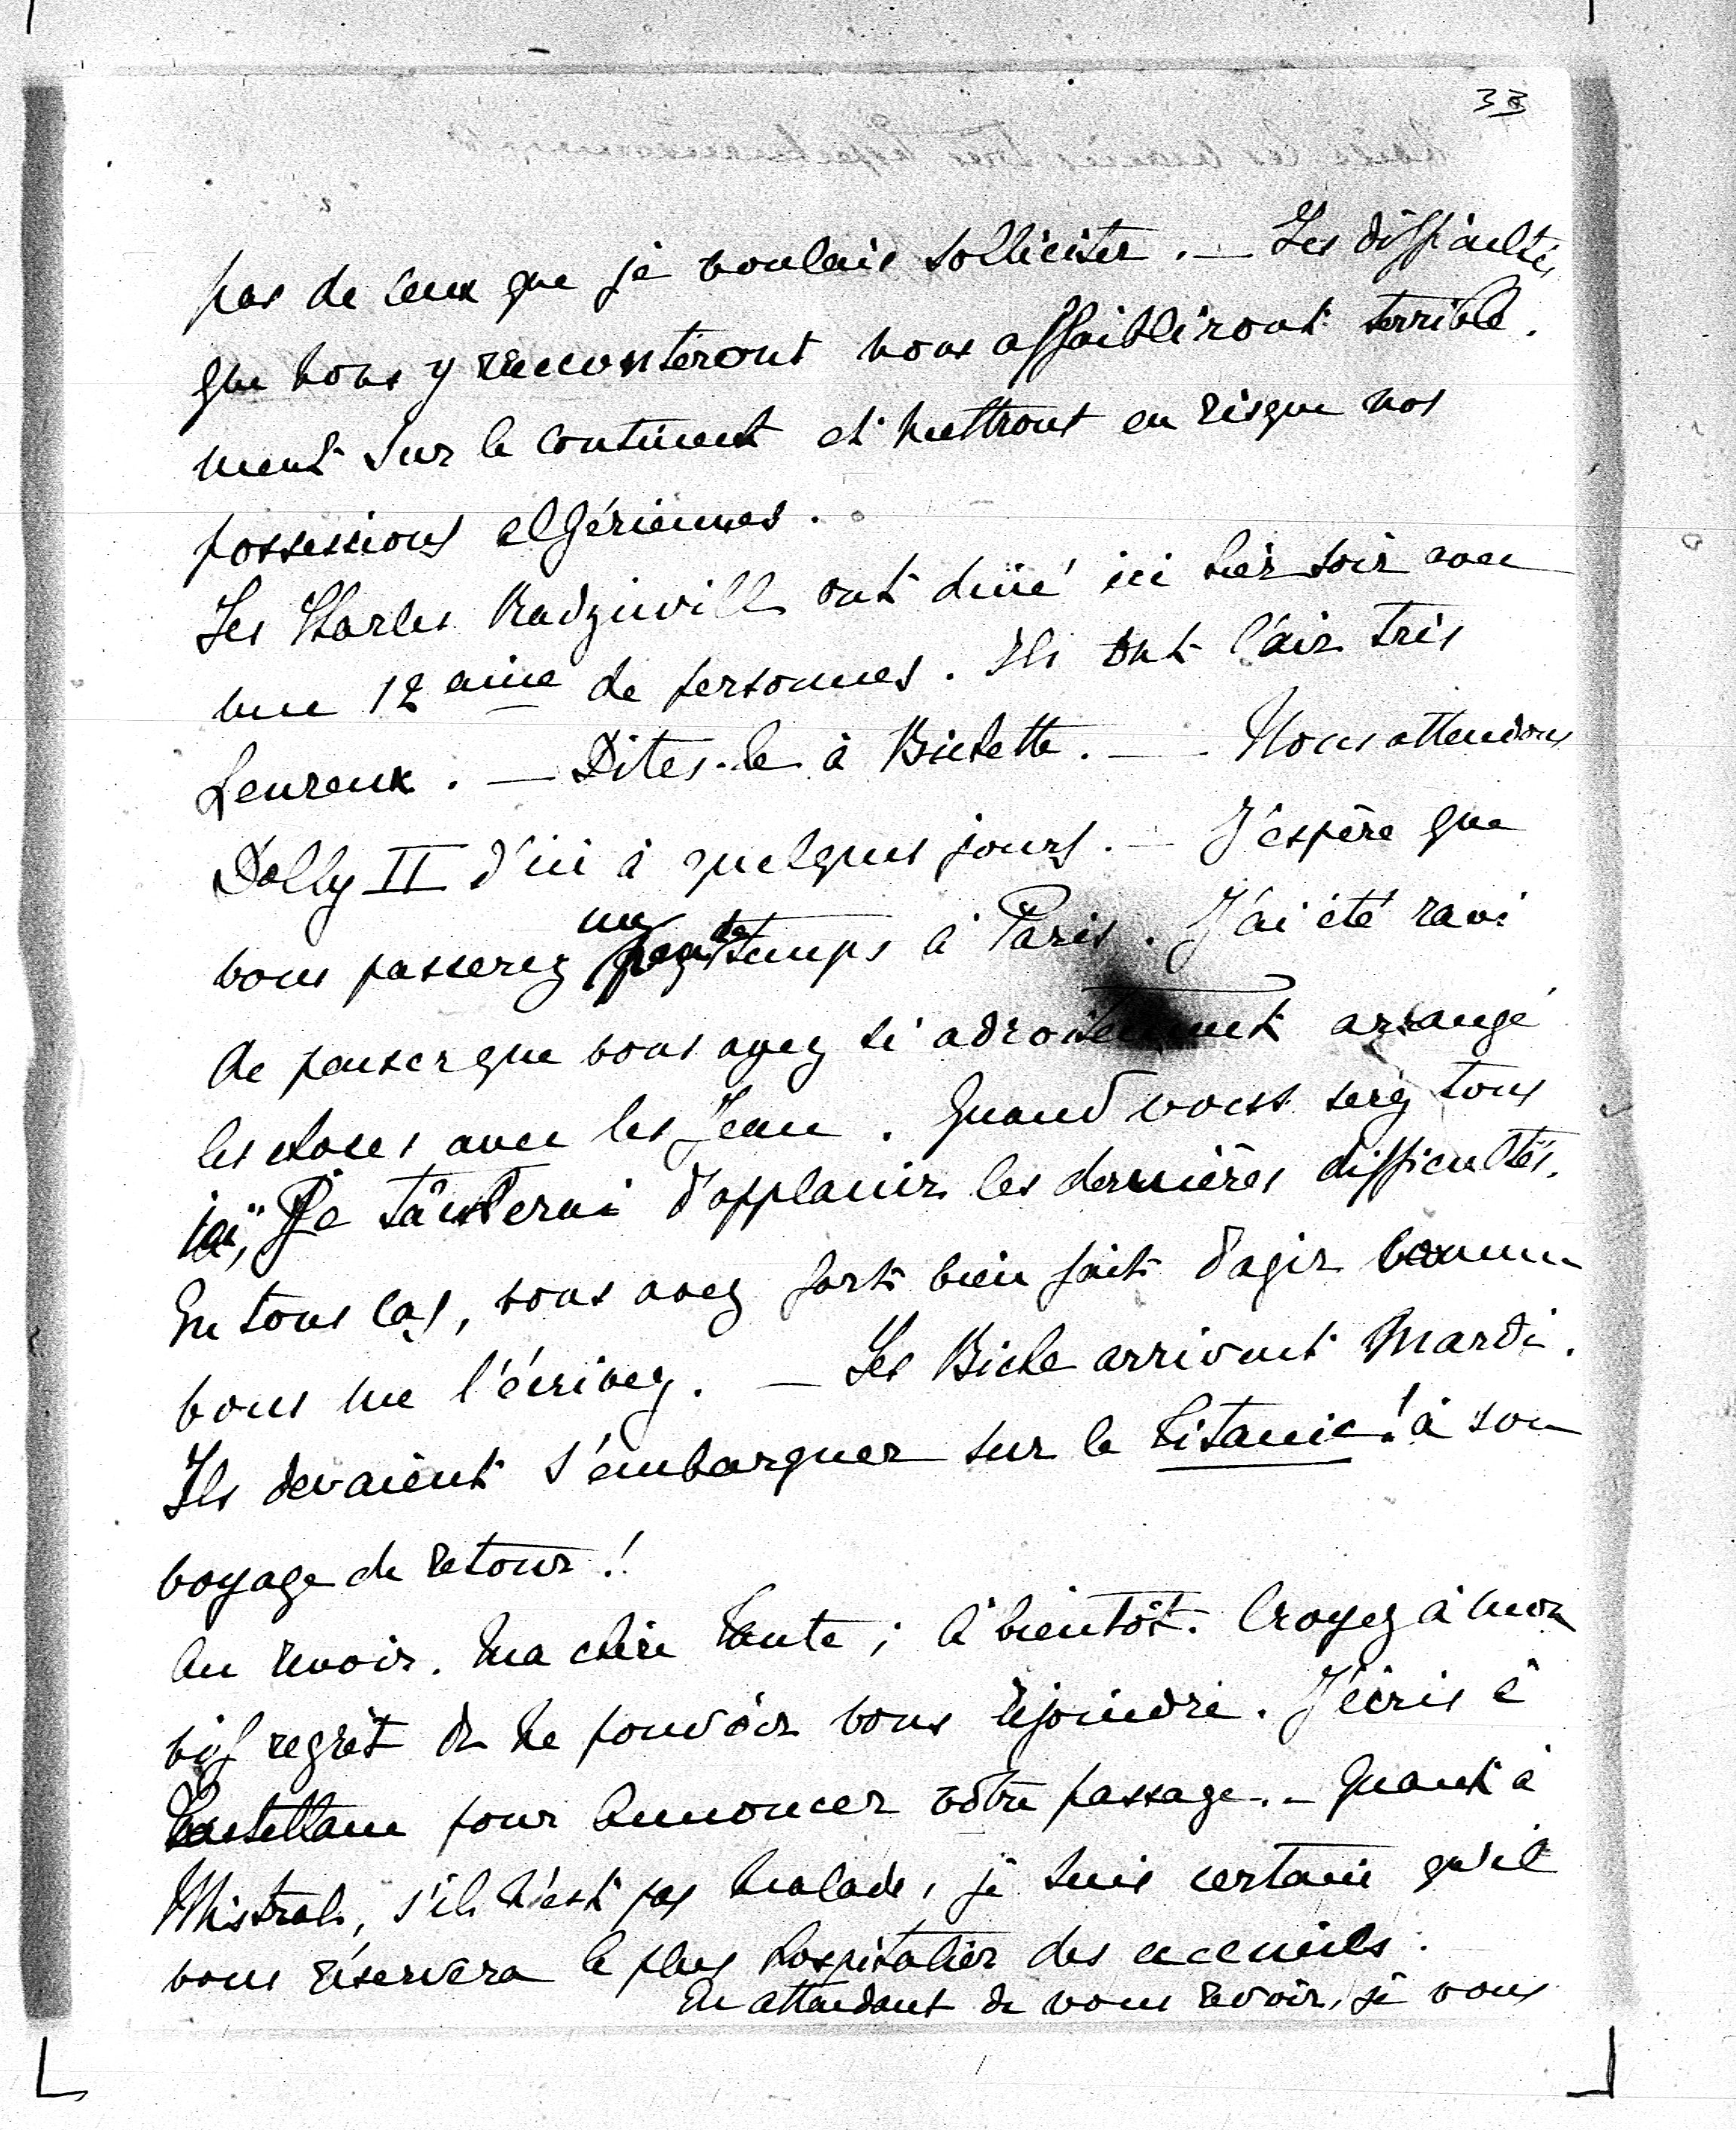 33
pas de ceux que je voulais solliciter. — Les difficultés
que nous y rencontrerons nous affaibliront terrible-
ment sur le continent et mettront en risque nos
possessions algériennes.
Les Charles Radziwill ont diné ici hier soir avec
une 12aine de personnes. Ils ont l'air très
heureux. — Dites-le à Bichette. — Nous attendons
Dolly II d'ici à quelques jours. — J'espère que
vous passerez un peu de temps à Paris. J'ai été ravi
de penser que vous ayez si adroitement arrangé
les choses avec les Jean. Quand vous serez tous
ici, je tâcherai d'applanir les dernières difficultés.
En tous cas, vous avez fort bien fait d'agir comme
vous me l'écrivez. — Les Biche arrivent Mardi.
Ils devaient s'embarquer sur le Titanic! à son
voyage de retour!
Au revoir. Ma chère Tante; à bientôt. Croyez à mon
vif regret de ne pouvoir vous rejoindre. J'écris à
Castellane pour annoncer votre passage. — Quant à
Mistral, s'il n'est pas malade, je suis certain qu'il
vous réservera le plus hospitalier des accueils.
En attendant de vous revoir, je vous